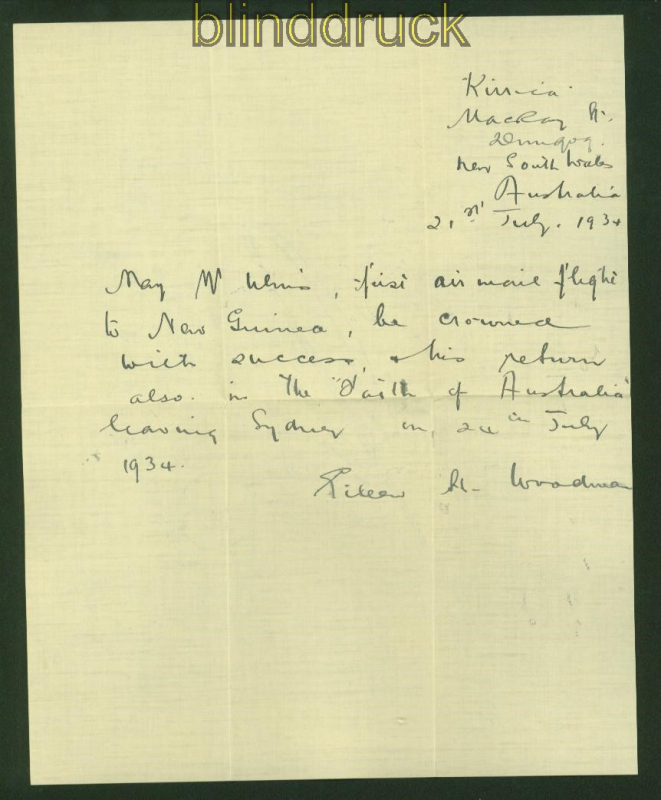 blinddruck
MacKay St.
Dungog.
New South Wales
Australia
21st July. 1934
May Mr Ulm's, first air mail flight
to New Guinea, be crowned
with success, & his return
also. in The "Faith of Australia"
leaving Sydney on, 24th July
1934.
Eileen Woodman